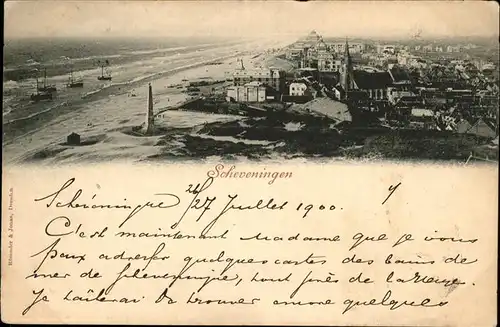 Scheveningen
Römmler & Jonas, Dresden.
Schéveningue, 27 Juillet 1900.
C'est maintenant Madame que je vous
peux adresser quelques cartes des bains de
mer de Scheveningue, tout près de la Haye.
Je tâcherai de trouver encore quelques